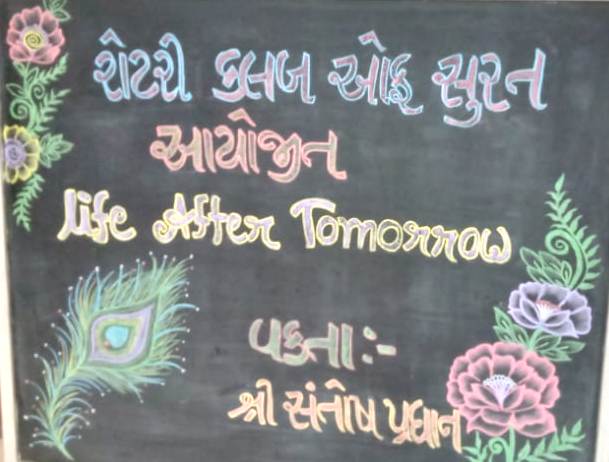 રોટરી ક્લબ ઓફ સુરત
આયોજીત
life After Tomorrow
વકતા:-
શ્રી સંતોષ પ્રધાન